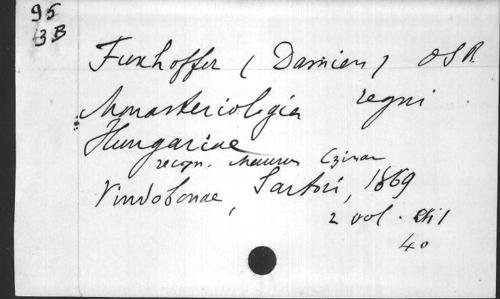 95
3B
Fuxhoffer (Damien) OSB
Monasteriologia regni
Hungariae
recogn. Maurus Czinar
Vindobonae, Sartori, 1869
2 vol.
4o